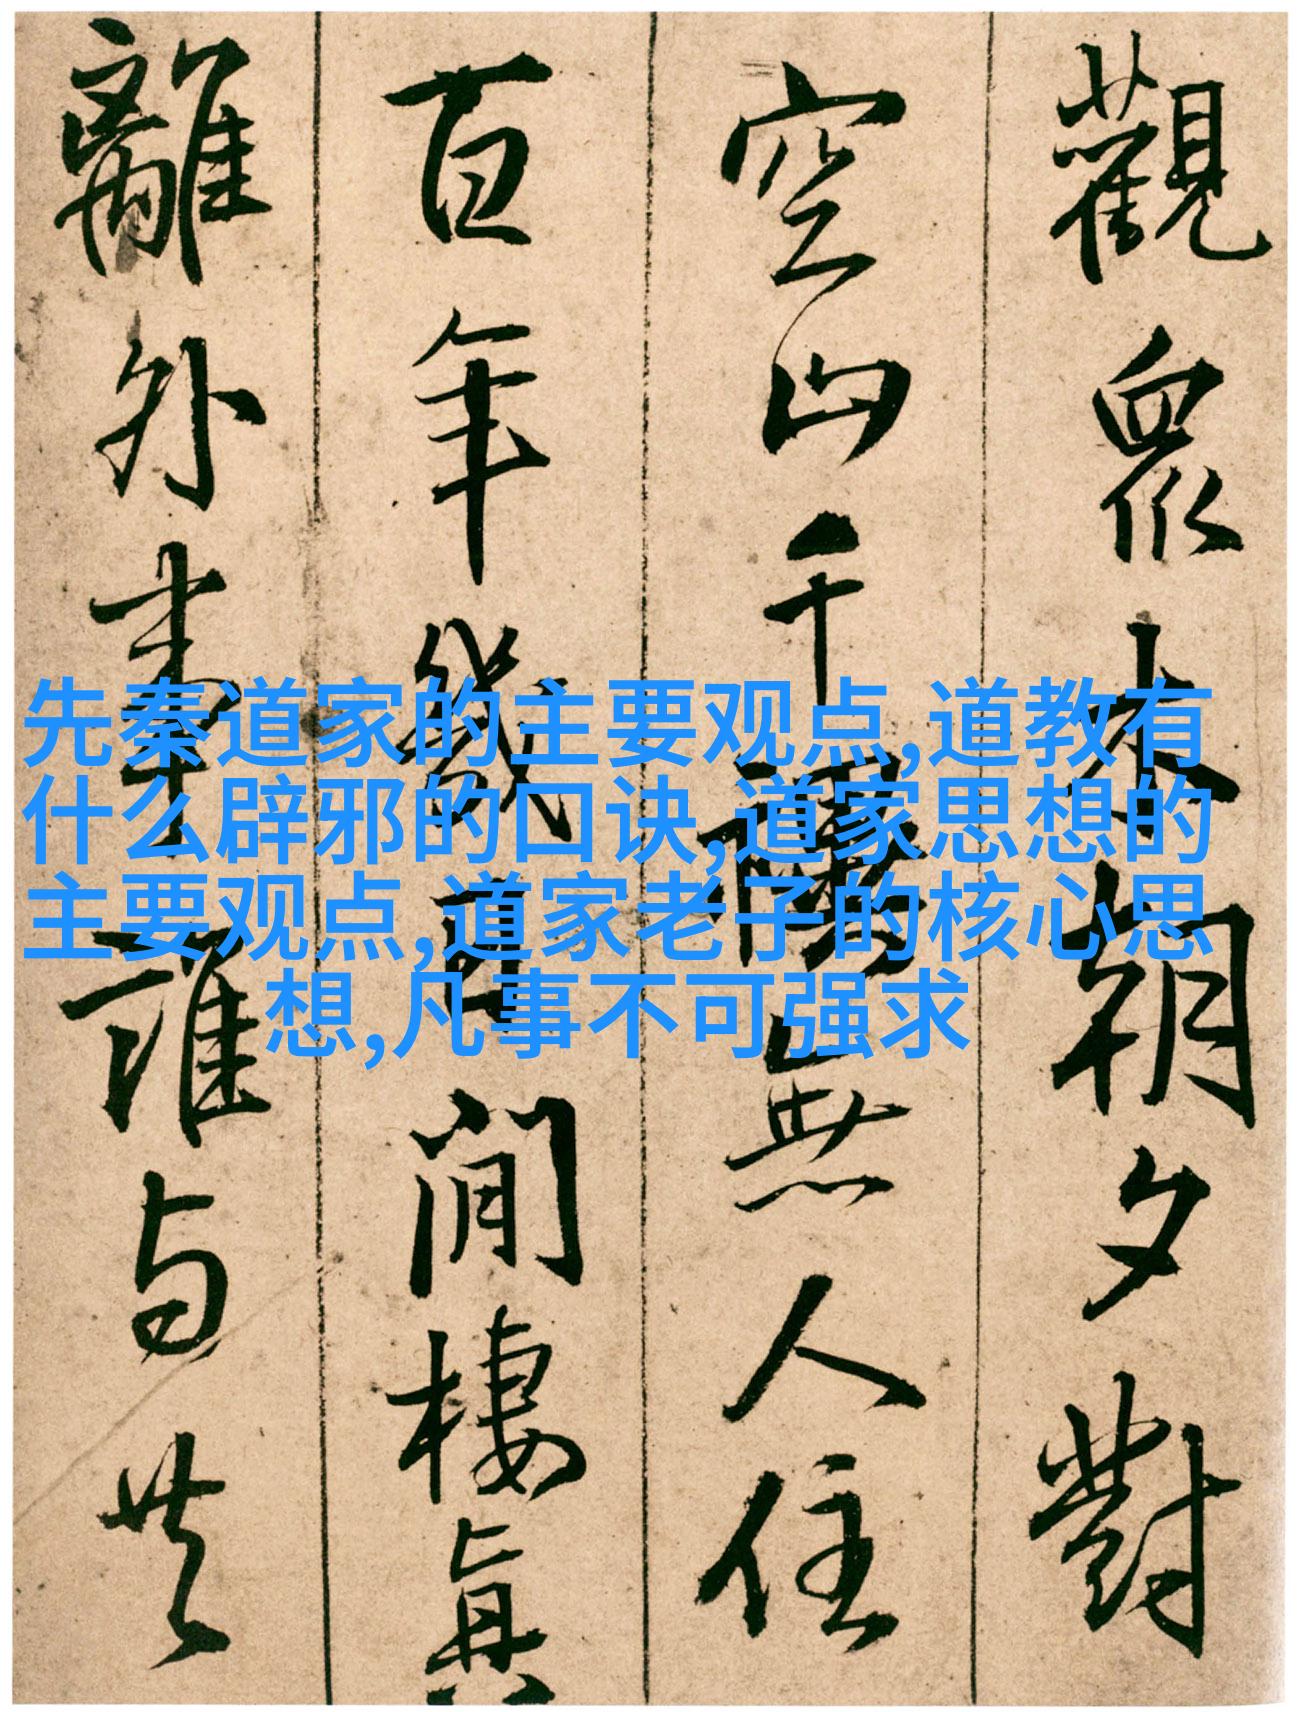 觀衆木朝夕對
空山千樹無人住
百年幾日閒棲真
離外事誰与共
先秦道家的主要观点,道教有
什么辟邪的口诀,道家思想的
主要观点,道家老子的核心思
想,凡事不可强求